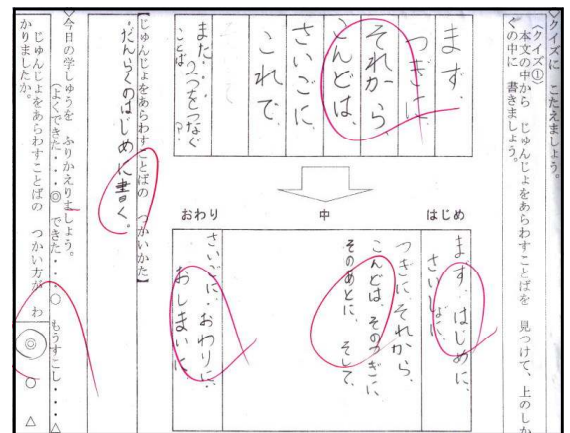 ◇クイズに こたえましょう。
〈クイズ①〉
本文の中から じゅんじょをあらわすことばを 見つけて、上のしか
くの中に 書きましょう。
まず、
つぎに
それから、
こんどは、
さいごに、
これで、
また・・・
２つをつなぐ
ことば
はじめ
中
おわり
まず、はじめに、
さいしょに、
つぎに、それから、
こんどは、そのつぎに、
そのあとに、そして、
さいごに、おわりに、
おしまいに、
【じゅんじょをあらわすことばの つかいかた】
・だんらくのはじめに書く。
◇今日の学しゅうを ふりかえりましょう。
（よくできた・・・◎ できた・・・○ もうすこし・・・△
じゅんじょをあらわすことばの つかい方が わ
かりましたか。
◎ ○ △